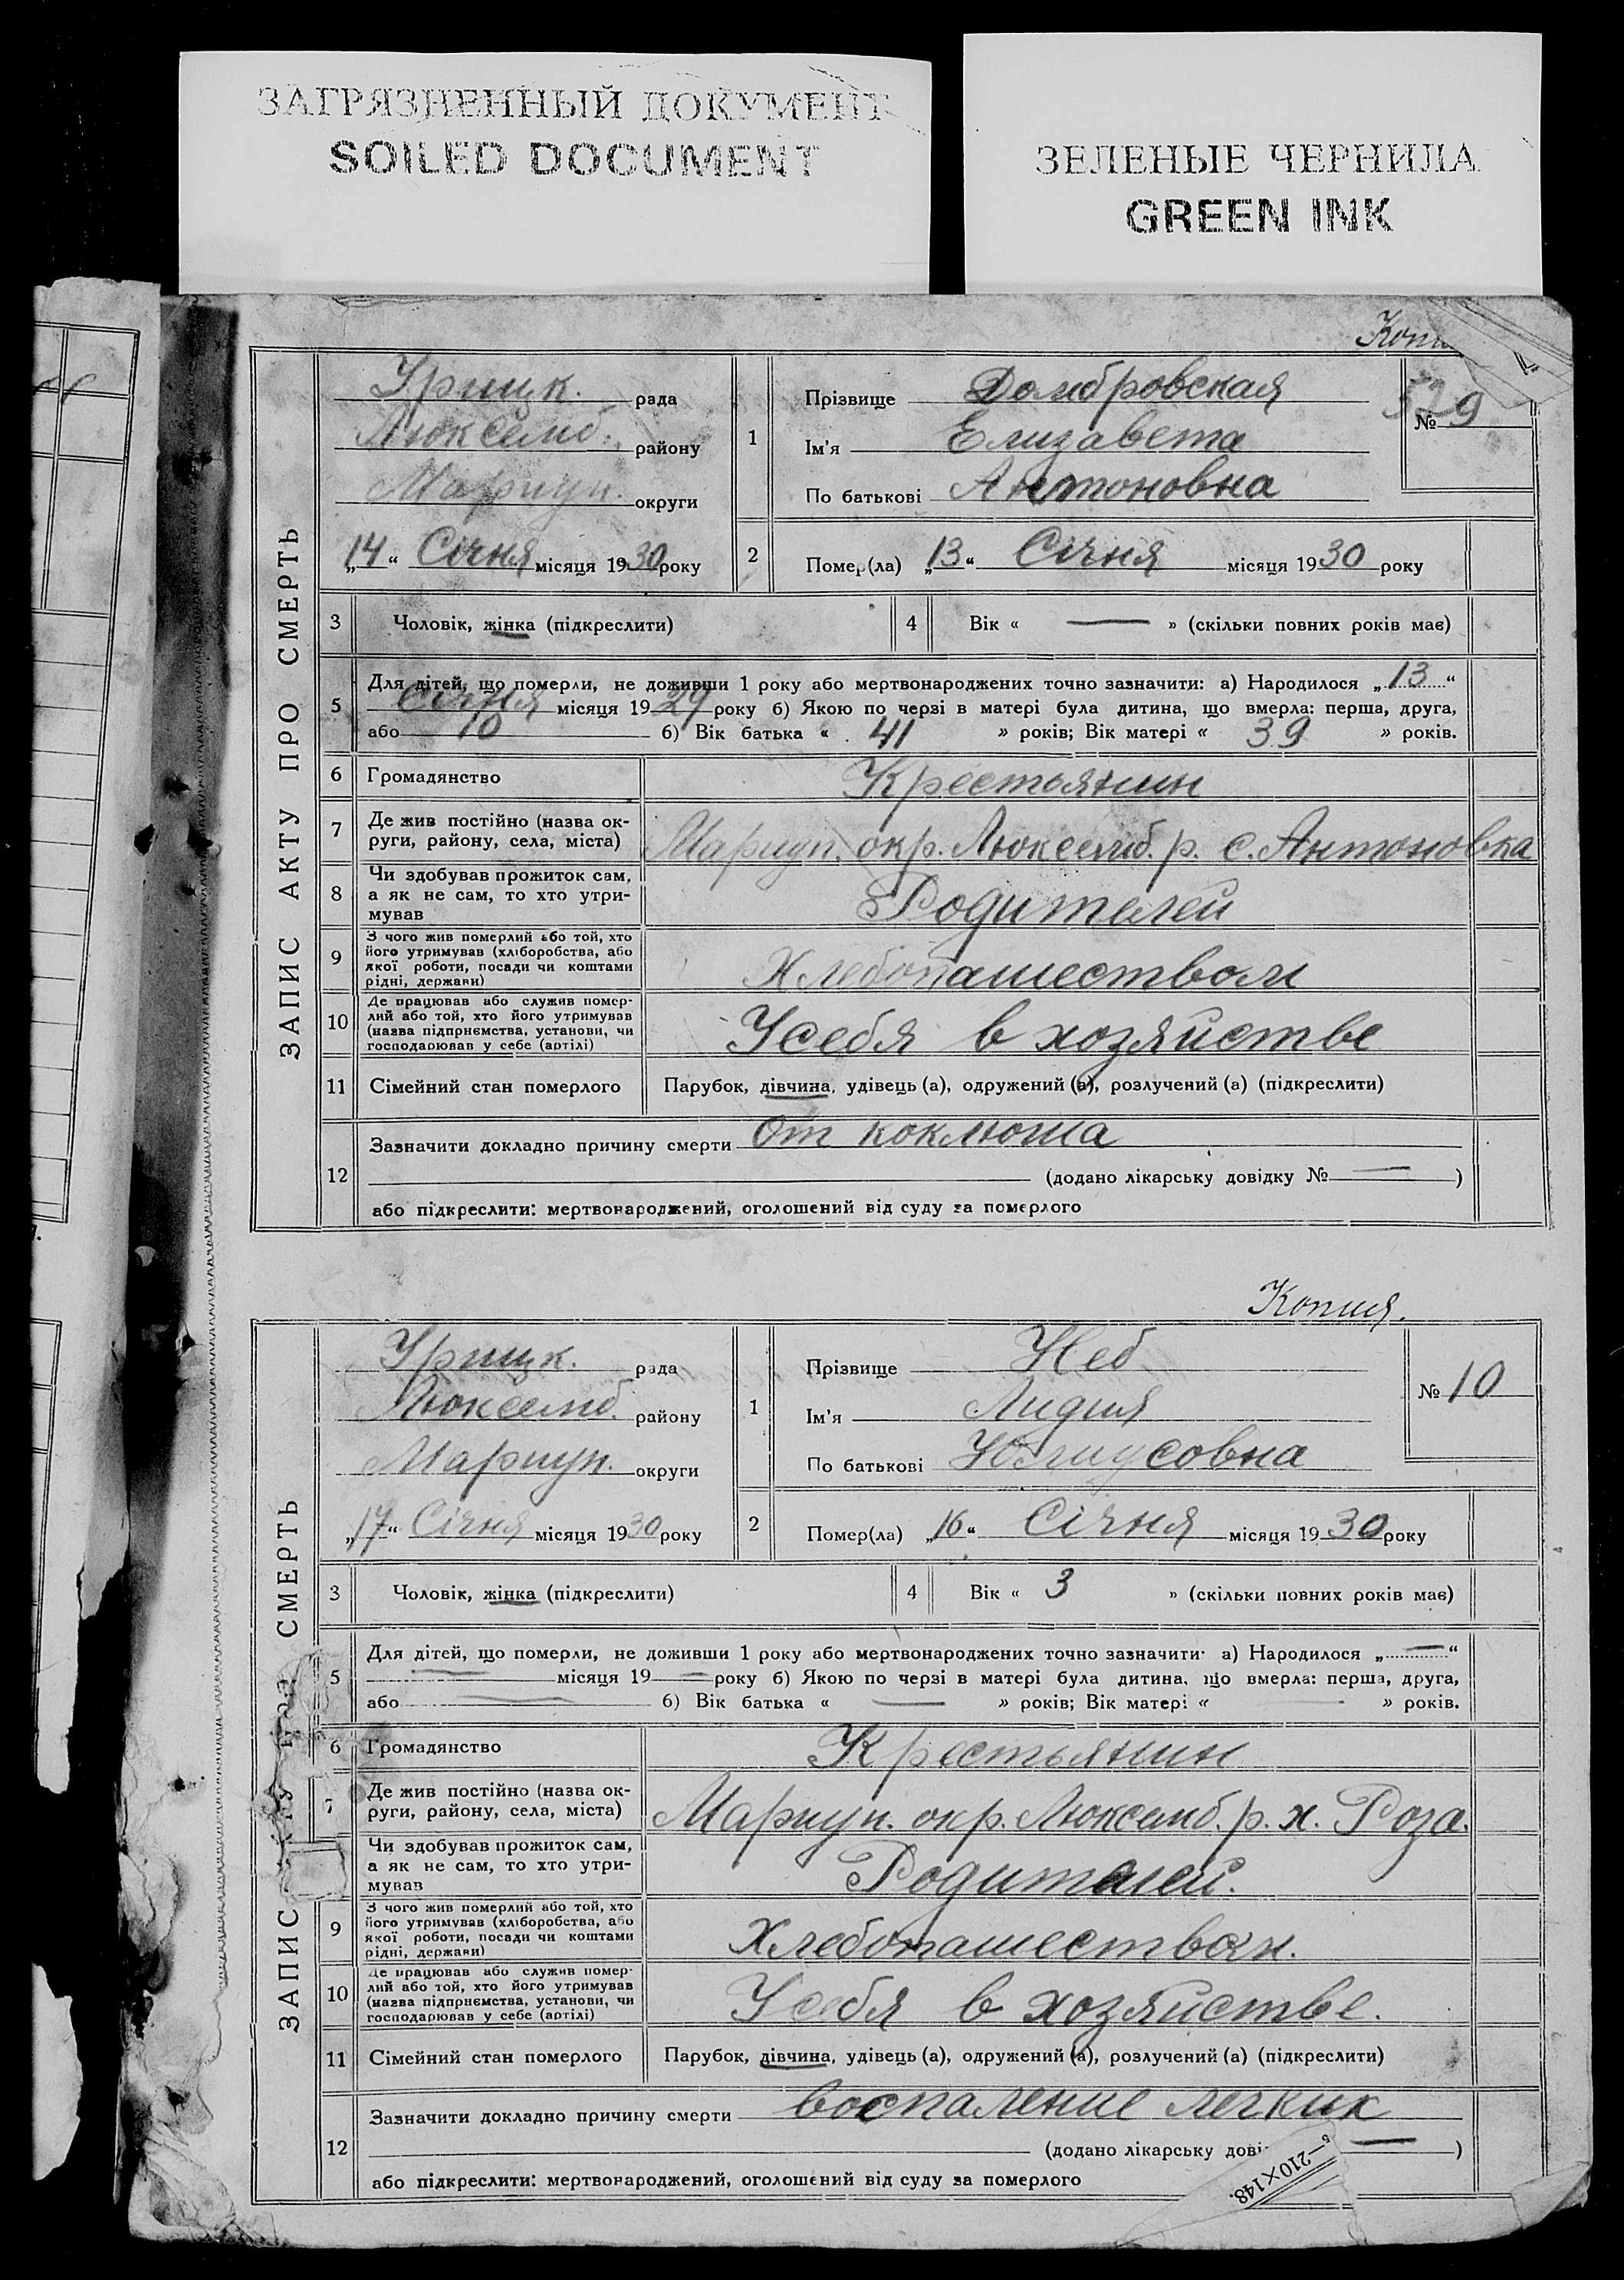 ЗАГРЯЗНЕННЫЙ ДОКУМЕНТ
SOILED DOCUMENT
ЗЕЛЕНЫЕ ЧЕРНИЛА
GREEN INK
ЗАПИС АКТУ ПРО СМЕРТЬ
Урицк. рада
Люксемб. району
Мариуп. округи
„14“ Січня місяця 1930 року
1
Прізвище Домбровская
Ім'я Елизавета
По батькові Антоновна
№ 9
2 Помер(ла) „13“ Січня місяця 1930 року
3 Чоловік, жінка (підкреслити)
4 Вік « — » (скільки повних років має)
5
Для дітей, що померли, не доживши 1 року або мертвонароджених точно зазначити: а) Народилося „13“
Січня місяця 1929 року б) Якою по черзі в матері була дитина, що вмерла: перша, друга,
або 10 б) Вік батька « 41 » років; Вік матері « 39 » років.
6 Громадянство Крестьянин
7 Де жив постійно (назва ок-
руги, району, села, міста) Мариуп. окр. Люксемб. р. с. Антоновка
8 Чи здобував прожиток сам,
а як не сам, то хто утри-
мував Родителей
9 З чого жив померлий або той, хто
його утримував (хліборобства, або
якої роботи, посади чи коштами
рідні, держави) Хлебопашеством
10 Де працював або служив помер-
лий або той, хто його утримував
(назва підприємства, установи, чи
господарював у себе (артілі) Усебя в хозяйстве
11 Сімейний стан померлого Парубок, дівчина, удівець (а), одружений (а), розлучений (а) (підкреслити)
12 Зазначити докладно причину смерти От коклюша
(додано лікарську довідку № — )
або підкреслити: мертвонароджений, оголошений від суду за померлого
Копия.
ЗАПИС СМЕРТЬ
Урицк. рада
Люксемб. району
Мариуп. округи
„17“ Січня місяця 1930 року
1
Прізвище Неб
Ім'я Лидия
По батькові Юлиусовна
№ 10
2 Помер(ла) „16“ Січня місяця 1930 року
3 Чоловік, жінка (підкреслити)
4 Вік « 3 » (скільки повних років має)
5
Для дітей, що померли, не доживши 1 року або мертвонароджених точно зазначити: а) Народилося „—“
— місяця 19— року б) Якою по черзі в матері була дитина, що вмерла: перша, друга,
або — б) Вік батька « — » років; Вік матері « — » років.
6 Громадянство Крестьянин
7 Де жив постійно (назва ок-
руги, району, села, міста) Мариуп. окр. Люксемб. р. х. Роза.
Чи здобував прожиток сам,
а як не сам, то хто утри-
мував Родителей.
9 З чого жив померлий або той, хто
його утримував (хліборобства, або
якої роботи, посади чи коштами
рідні, держави) Хлебопашеством.
10 Де працював або служив помер-
лий або той, хто його утримував
(назва підприємства, установи, чи
господарював у себе (артілі) Усебя в хозяйстве.
11 Сімейний стан померлого Парубок, дівчина, удівець (а), одружений (а), розлучений (а) (підкреслити)
12 Зазначити докладно причину смерти воспаление легких
(додано лікарську — )
або підкреслити: мертвонароджений, оголошений від суду за померлого
210×148.